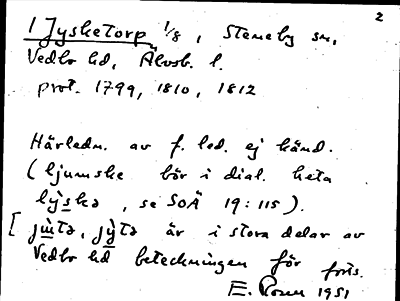 2
1 Jysketorp 1/8, Steneby sn,
Vedbo hd, Älvsb. l.
prot. 1799, 1810, 1812
Härledn. av f. led. ej känd.
(ljumske bör i dial. heta
lỳskə, se SOÄ 19:115).
[jùtə, jỳtə är i stora delar av
Vedbo hd beteckningen för
E. 1951